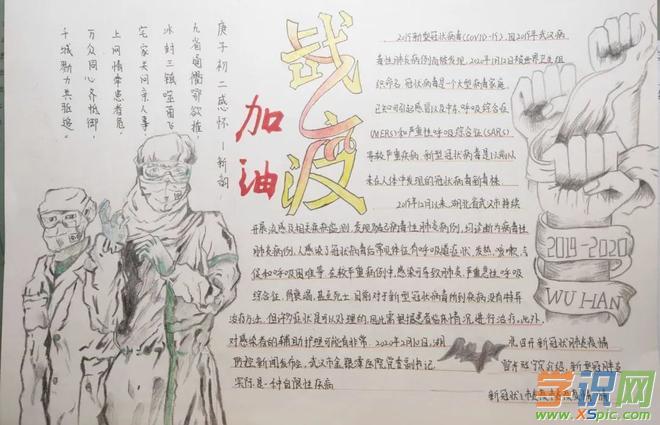 战疫
加油
庚子初二感怀—新韵
九省通衢
冰封三镇
宅家共同京人事
上网情牵患者危
万众同心齐抵御
千城勠力共驱
2019新型冠状病毒(COVID-19),因2019年武汉病
毒性肺炎病例而被发现,2020年1月12日被世界卫生组
织命名 冠状病毒是一个大型病毒家庭,
已知可引起感冒以及中东呼吸综合征
(MERS)和严重性呼吸综合征(SARS)
等较严重疾病.新型冠状病毒是以前从
未在人体中发现的冠状病毒新毒株
2019年12月以来,湖北省武汉市持续
开展流感及相关疾病监测,发现多起病毒性肺炎病例,均诊断为病毒性
肺炎病例,人感染了冠状病毒后常见体征有呼吸道症状、发热、咳嗽、气
促和呼吸困难等.在较严重病例中,感染可导致肺炎,严重急性呼吸
综合征,肾衰竭,甚至死亡.目前对于新型冠状病毒所致疾病没有特异
治疗方法.但许多症状是可以处理的,因此需根据患者临床情况进行治疗.此外,
对感染者的辅助护理可能有非常 2020年2月10日,湖 北召开新冠状肺炎疫情
防控新闻发布会,武汉市金银潭医院党委副书记 介绍,新型肺炎
实际是一种自限性疾病
新冠状
2019-2020
WU HAN
学识网
www.XSpic.com